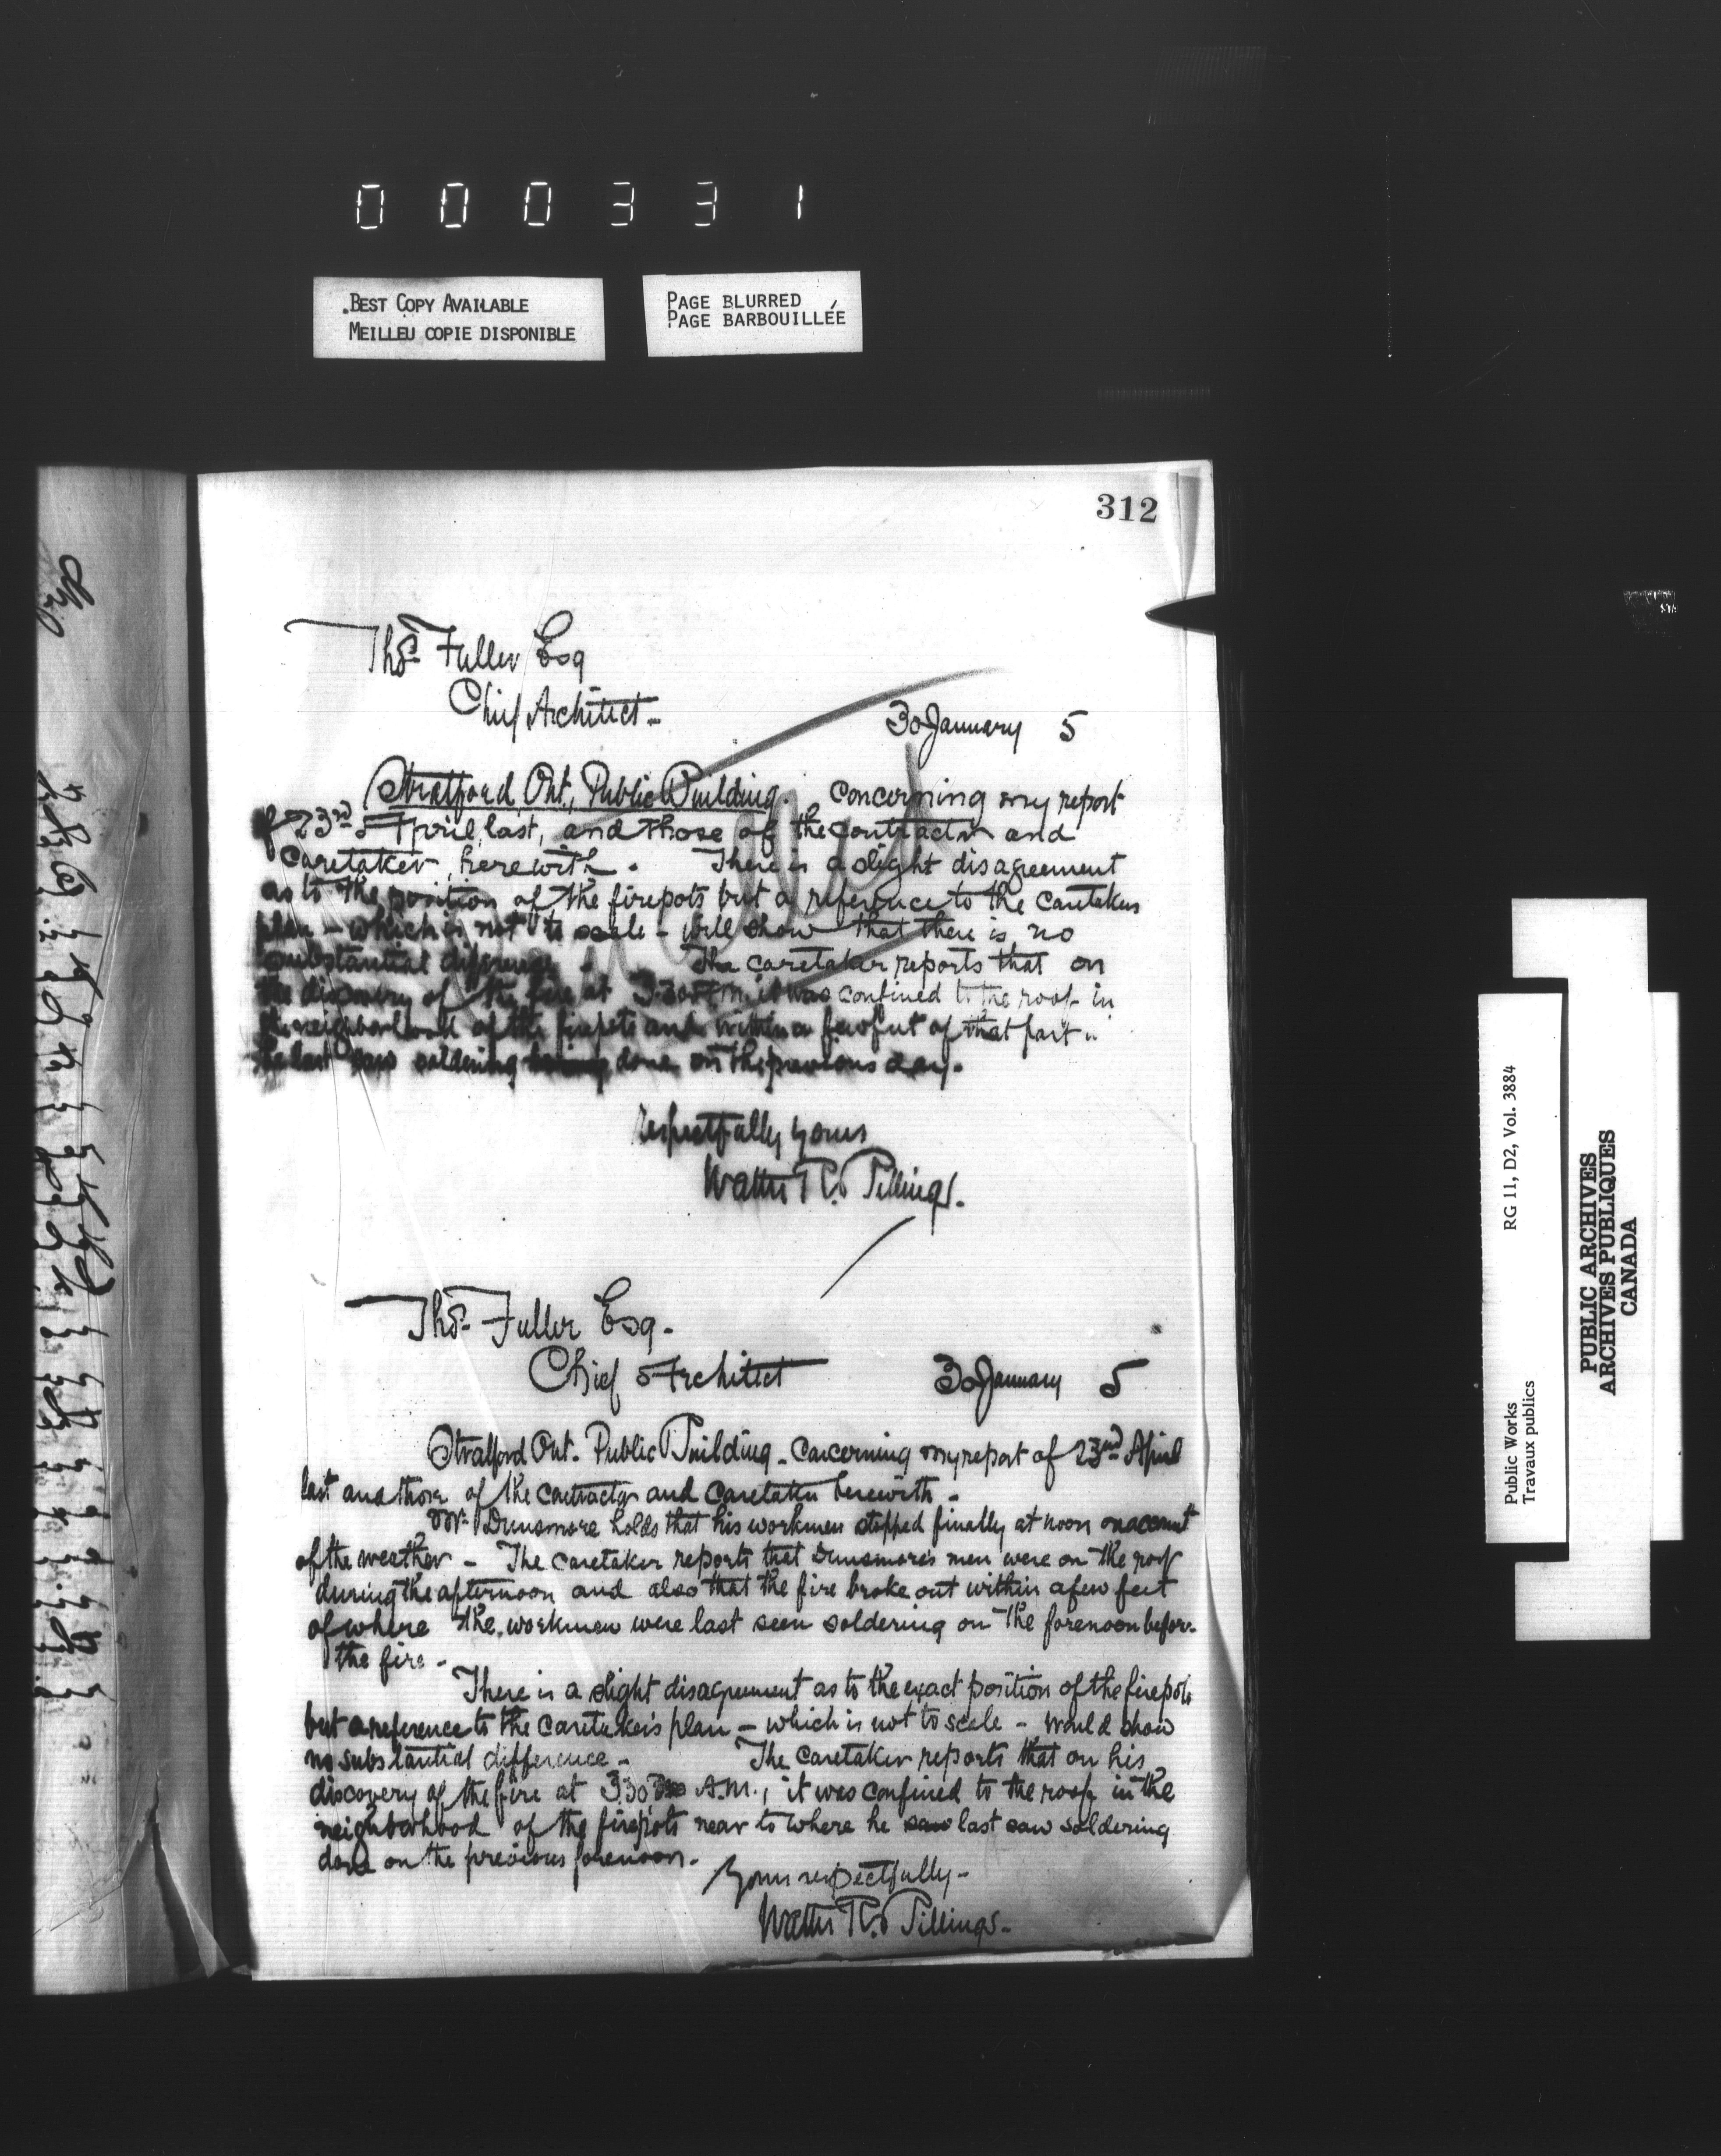 000331
.BEST COPY AVAILABLE
MEILLEU COPIE DISPONIBLE
PAGE BLURRED
PAGE BARBOUILLÉE
312
Thos. Fuller Esq
Chief Architect -
30 January 5
Stratford, Ont., Public Building. Concerning my report
of 23rd April, last, and those of the contractor and
Caretaker, herewith. There is a slight disagreement
as to the position of the firepots but a reference to the Caretakers
plan - which is not to scale - will show that there is no
substantial difference. The caretaker reports that on
the discovery of the fire at 3.30 A.M. it was confined to the roof in
the neighborhood of the firepots and within a few feet of that part
he last saw soldering being done on the previous day.
Respectfully yours
Walter R. Billings.
Thos. Fuller Esq.
Chief Architect
30 January 5
Stratford Ont. Public Building - Concerning my report of 23rd April
last and those of the contractor and Caretaker herewith -
Mr. Dunsmore holds that his workmen stopped finally at noon on account
of the weather - The caretaker reports that Dunsmore's men were on the roof
during the afternoon and also that the fire broke out within a few feet
of where the workmen were last seen soldering on the forenoon before
the fire -
There is a slight disagreement as to the exact position of the firepots
but a reference to the Caretaker's plan - which is not to scale - would show
no substantial difference - The Caretaker reports that on his
discovery of the fire at 3.30 A.M., it was confined to the roof in the
neighborhood of the firepots near to where he saw last saw soldering
done on the previous forenoon.
Yours respectfully -
Walter R. Billings -
Public Works
Travaux publics
RG 11, D2, Vol. 3884
PUBLIC ARCHIVES
ARCHIVES PUBLIQUES
CANADA